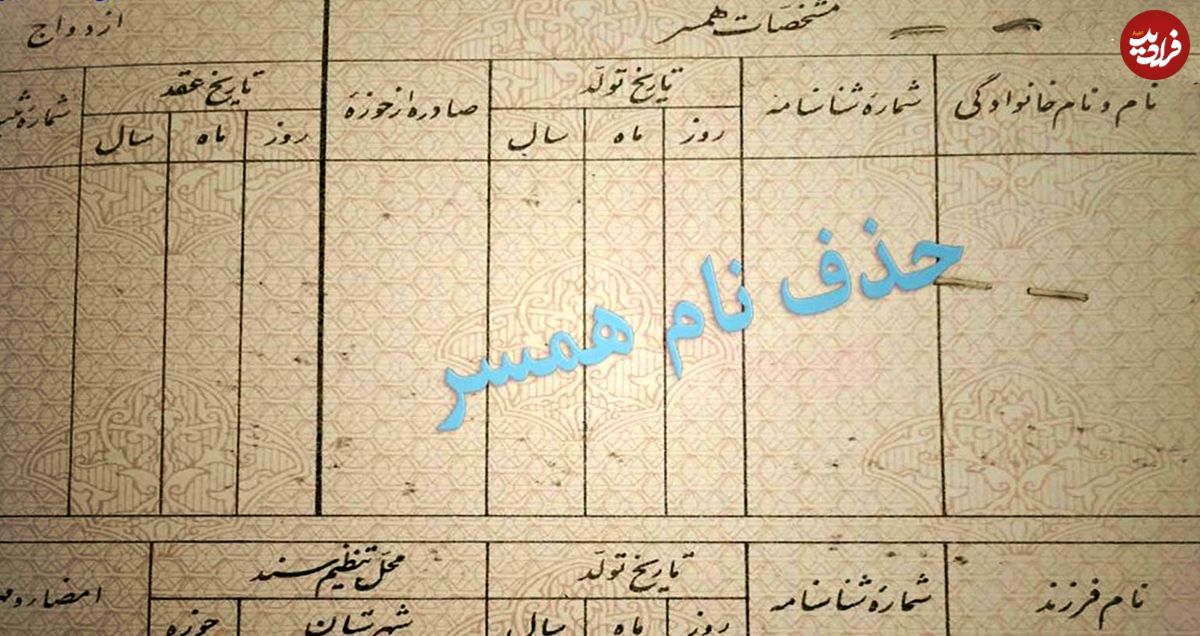 فرادید
مشخصات همسر ازدواج
نام و نام خانوادگی شمارهٔ شناسنامه تاریخ تولد صادره از حوزهٔ تاریخ عقد شمارهٔ
روز ماه سال روز ماه سال
حذف نام همسر
نام فرزند شمارهٔ شناسنامه تاریخ تولد محل تنظیم سند امضاء و
روز ماه سال شهرستان حوزه